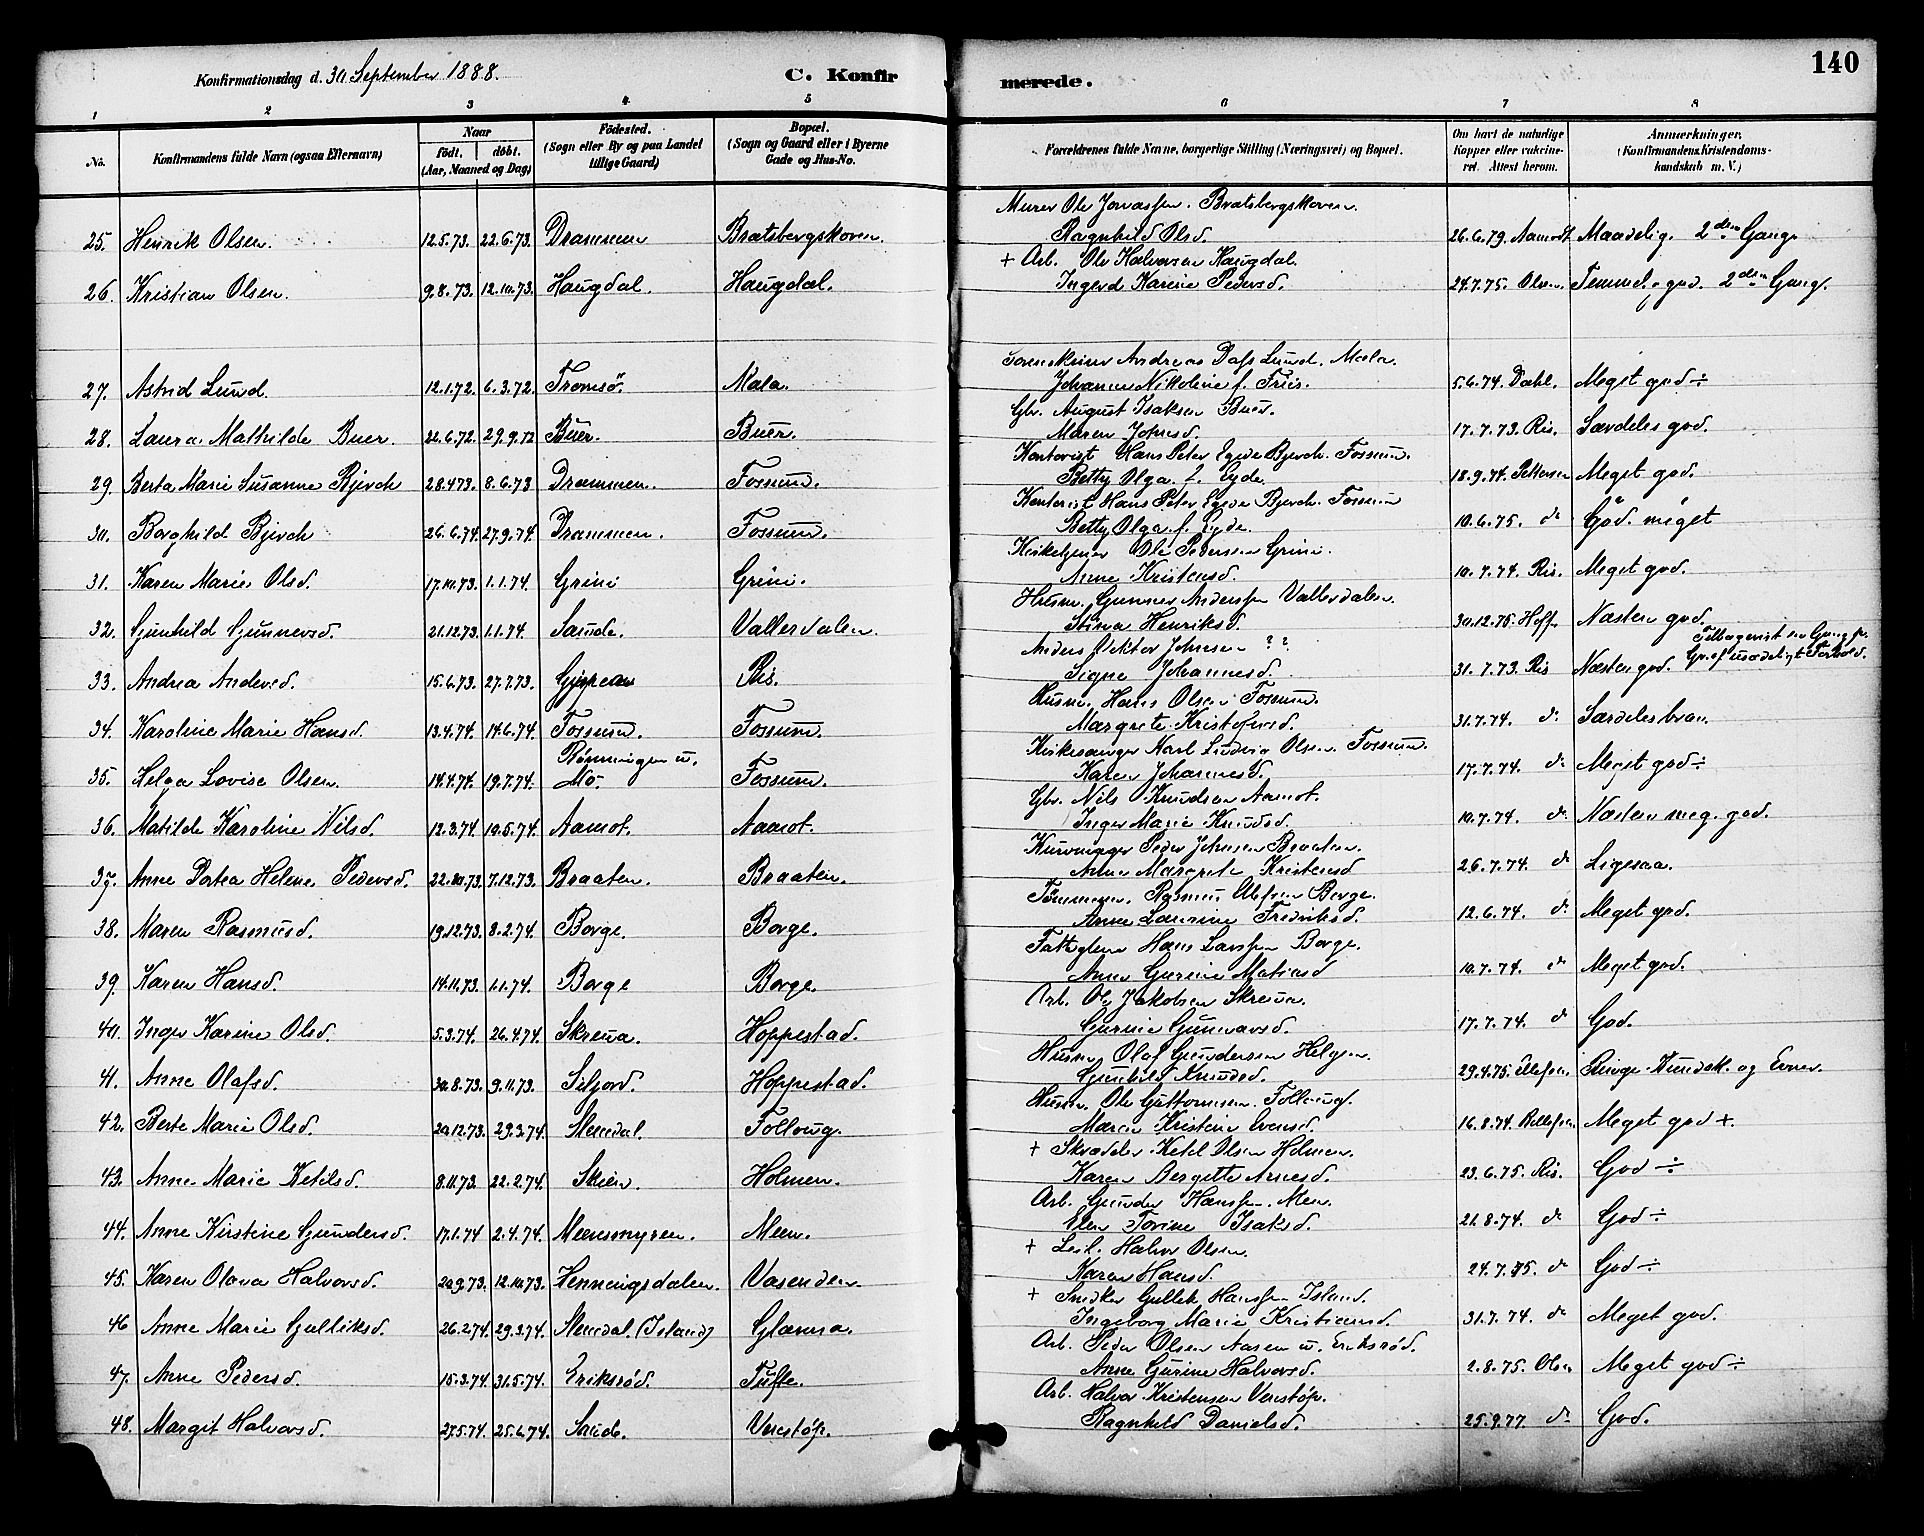 Konfirmationsdag d. 30 September 1888. C. Konfir merede. 140
1 2 3 4 5 6 7 8
No. Konfirmandens fulde Navn (ogsaa Efternavn) Naar født. døbt. (Aar, Maaned og Dag) Fødested. (Sogn eller By og paa Landet tillige Gaard) Bopæl. (Sogn og Gaard eller i Byerne Gade og Hus-No. Forældrenes fulde Navne, borgerlige Stilling (Næringsvei) og Bopæl. Om havt de naturlige Kopper eller vakcineret. Attest herom. Anmærkninger. (Konfirmandens Kristendomskundskab m. V.)
Murer Ole Jonassen. Bratsbergskoven.
25. Henrik Olsen. 12.5.73. 22.6.73. Drammen Bratsbergskoven. Ragnhild Olsd. 26.6.79. Aamodt Maadelig. 2den Gang.
+ Arb. Ole Halvorsen Haugdal.
26. Kristian Olsen. 9.8.73. 12.10.73. Haugdal. Haugdal. Ingerd Karine Pedersd. 24.7.75. Olsen. Temmel. god. 2den Gang.
Sorenskriver Andreas Dass Lund. Mæla.
27. Astrid Lund. 12.1.72. 6.3.72. Tromsö. Mæla. Johanne Nikoline f. Friis. 5.6.74. Dahl. Meget god ÷
Gbr. August Isaksen Buer.
28. Laura Mathilde Buer. 22.6.72. 29.9.72 Buer. Buer. Maren Johnsd. 17.7.73. Ris. Særdeles god.
Kontorist Hans Peter Egede Bjerch. Fossum.
29. Berta Marie Susanne Bjerch 28.4.73. 8.6.73 Drammen. Fossum. Betty Olga f. Eyde. 18.9.74. Pettersen Meget god.
Kontorist Hans Peter Egede Bjerch. Fossum
30. Borghild Bjerch 26.6.74. 27.9.74. Drammen. Fossum. Betty Olga f. Eyde. 10.6.75. do God. meget
Kirketjener Ole Pedersen Grini.
31. Karen Marie Olsd. 17.10.73. 1.1.74. Grini Grini. Anne Kristensd. 10.7.74. Ris. Meget god.
Husm. Gunner Anderssen Vallerdalen.
32. Gunhild Gunnersd. 21.12.73. 1.1.74. Saude. Vallerdalen. Stina Henriksd. 30.12.75. Hoff. Næsten god.
Anders Viktor Johnsen ? ? Tilbagevist en Gang p. Gr. af usædeligt Forhold.
33. Andrea Andersd. 15.6.73. 27.7.73. Gjerpen Ris. Signe Johannesd. 31.7.73. Ris Næsten god.
Husm. Hans Olsen Fossum.
34. Karoline Marie Hansd. 13.4.74. 14.6.74. Fossum. Fossum. Margrete Kristofersd. 31.7.74. do Særdeles bra.
Kirkesanger Karl Ludvig Olsen. Fossum.
35. Helga Lovise Olsen. 14.4.74. 19.7.74. Rønningen u. Mo. Fossum. Karen Johannesd. 17.7.74. do Meget god ÷
Gbr. Nils Knudsen Aamot.
36. Matilde Karoline Nilsd. 12.3.74. 10.5.74. Aamot. Aamot. Inger Marie Knudsd. 10.7.74. do Næsten meg. god.
Kurvmager Peder Johnsen Braaten.
37. Anne Dortea Helene Pedersd. 22.10.73. 7.12.73. Braaten. Braaten. Anne Margrete Kristensd 26.7.74. do Ligesaa.
Tømmerm. Rasmus Olefsen Borge.
38. Maren Rasmusd. 19.12.73. 8.2.74. Borge. Borge. Anne Laurine Fredriksd. 12.6.74. do Meget god.
Fattiglem Hans Larssen Borge.
39. Karen Hansd. 14.11.73. 1.1.74. Borge Borge. Anne Gurine Matiasd 10.7.74. do Meget god.
Arb. Ole Jakobsen Skreua.
40. Inger Karine Olsd. 5.3.74. 26.4.74. Skreua. Hoppestad. Gurine Gunnarsd. 17.7.74. do God.
Husm. Olaf Gundersen Helgen.
41. Anne Olafsd. 30.8.73. 9.11.73. Siljord. Hoppestad. Gunhild Knudsd. 29.4.75. Ellefsen. Ringe Kundsk. og Evner.
Husm. Ole Guttormsen. Follaug.
42. Berte Marie Olsd. 20.12.73. 29.3.74. Slemdal. Follaug. Maren Kristine Evensd. 16.8.74. Rollefsen. Meget god +.
+ Skrædder Ketil Olsen Holmen.
43. Anne Marie Ketilsd. 8.11.73. 22.2.74. Skien. Holmen. Karen Bergitte Arnesd. 23.6.75. Ris. God ÷
Arb. Gunder Hanssen. Meen.
44. Anne Kirstine Gundersd. 17.1.74 2.4.74. Meensmyren. Meen. Elen Torine Isaksd. 21.8.74. do God ÷
+ Leil. Halvor Olsen.
45. Karen Olava Halvorsd. 20.9.73. 12.10.73. Henningsdalen. Vasenden. Karen Hansd. 24.7.75. do God ÷
+ Snedker Gullik Hanssen Island.
46 Anne Marie Gulliksd. 26.2.74. 29.3.74. Slemdal (Island) Glænna. Ingeborg Marie Kristiansd. 31.7.74. do Meget god.
Arb. Peder Olsen Aasen u. Eriksrød.
47. Anne Pedersd. 15.3.74. 31.5.74. Eriksrød. Tufte. Anne Gurine Halvorsd. 2.8.75. Olsen Meget god ÷
Arb. Halvor Kristensen Venstøp.
48. Margit Halvorsd. 27.5.74. 25.6.74. Saude. Venstøp. Ragnhild Danielsd. 25.9.77 do God.